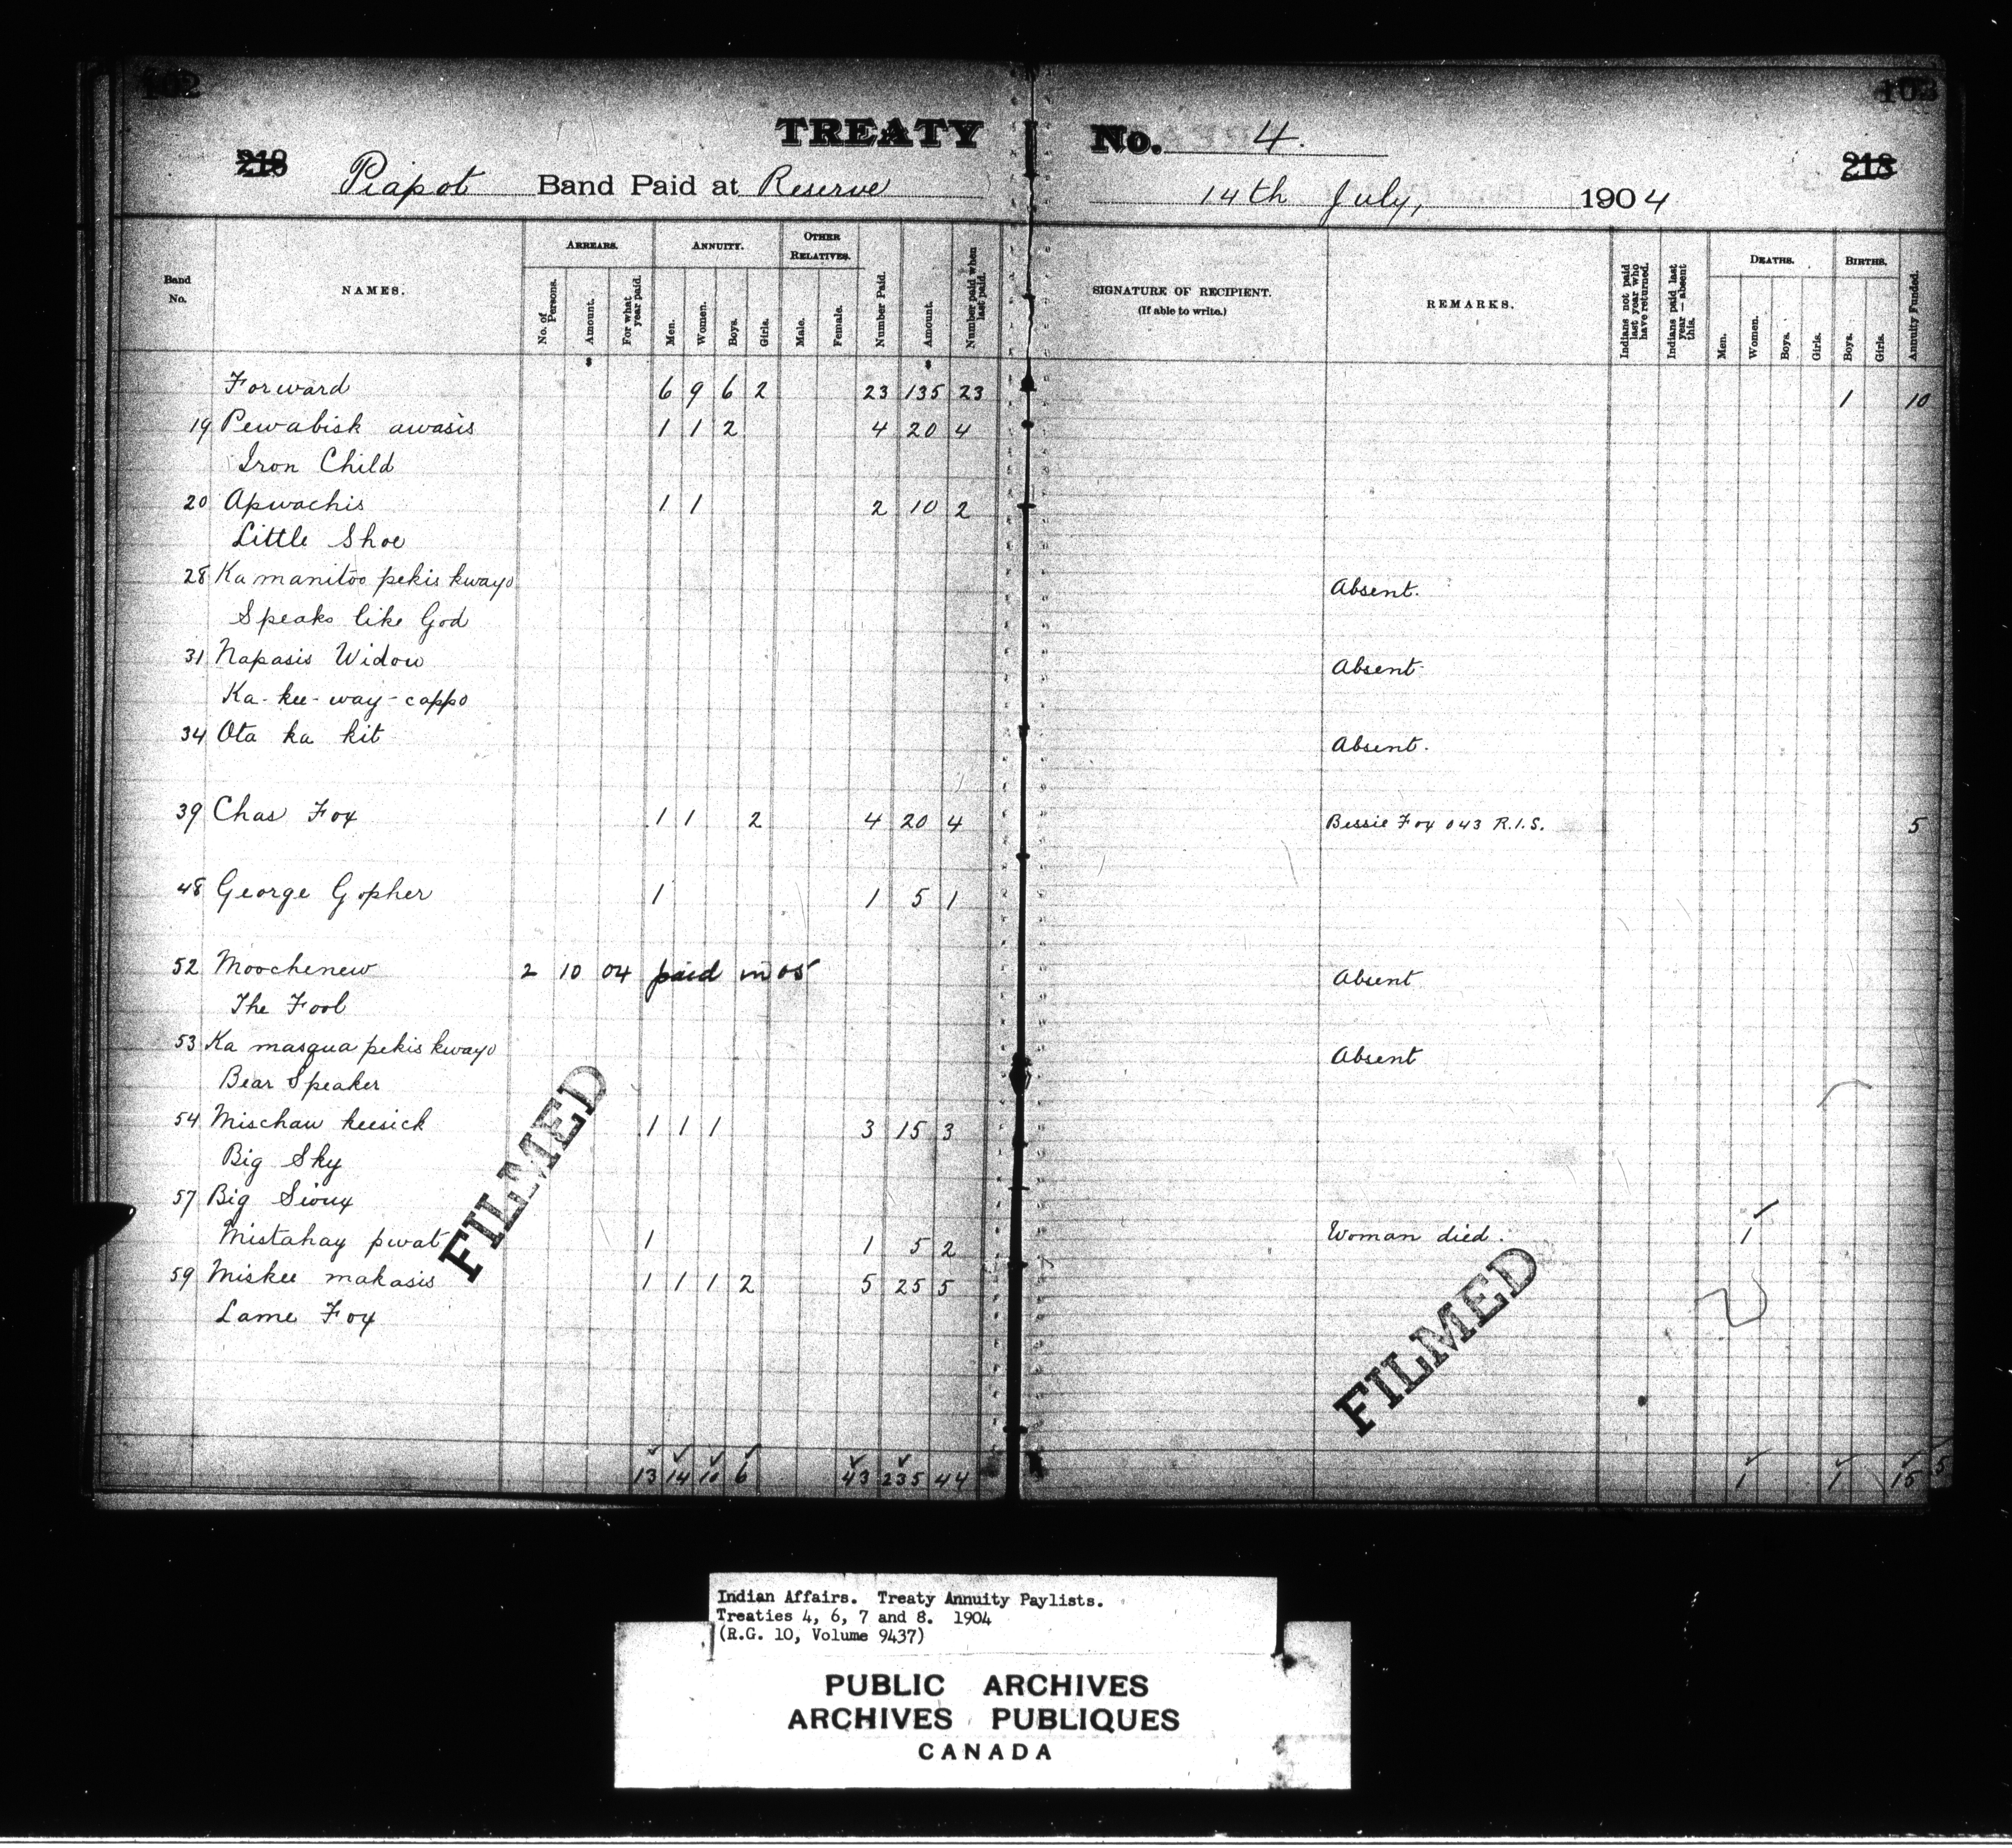 102
103
TREATY No. 4.
218
218
Piapot Band Paid at Reserve 14th July, 1904
Band No.
NAMES.
ARREARS.
No. of Persons.
Amount.
For what year paid.
ANNUITY.
Men.
Women.
Boys.
Girls.
OTHER RELATIVES.
Male.
Female.
Number Paid.
Amount.
Number paid when last paid.
SIGNATURE OF RECIPIENT.
(If able to write.)
REMARKS.
Indians not paid last year who have returned.
Indians paid last year—absent this.
DEATHS.
Men.
Women.
Boys.
Girls.
BIRTHS.
Boys.
Girls.
Annuity Funded.
$ $
Forward 6 9 6 2 23 135 23 1 10
19 Pewabisk awasis 1 1 2 4 20 4
Iron Child
20 Apwachis 1 1 2 10 2
Little Shoe
28 Ka manitoo pekis kwayo Absent.
Speaks like God
31 Napasis Widow Absent
Ka-kee-way-cappo
34 Ota ka kit Absent.
39 Chas Fox 1 1 2 4 20 4 Bessie Fox 043 R.I.S. 5
48 George Gopher 1 1 5 1
52 Moochenew 2 10 04 paid in 05 Absent
The Fool
53 Ka masqua pekis kwayo Absent
Bear Speaker
54 Mischaw keesick 1 1 1 3 15 3
Big Sky
57 Big Sioux
Mistahay pwat 1 1 5 2 Woman died. 1
59 Miskee makasis 1 1 1 2 5 25 5
Lame Fox
FILMED
FILMED
13 14 10 6 43 235 44 1 1 15
Indian Affairs. Treaty Annuity Paylists.
Treaties 4, 6, 7 and 8. 1904
(R.G. 10, Volume 9437)
PUBLIC ARCHIVES
ARCHIVES PUBLIQUES
CANADA